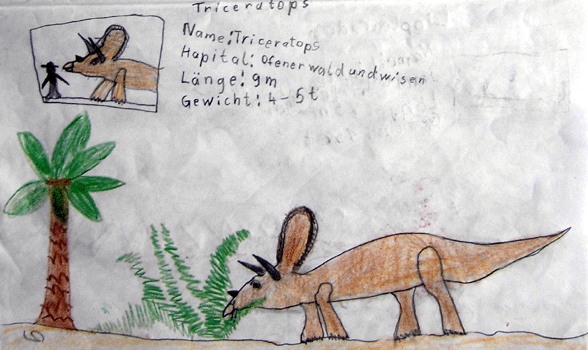 Triceratops
Name: Triceratops
Hapital: Ofener wald und wisen
Länge: 9m
Gewicht: 4-5t